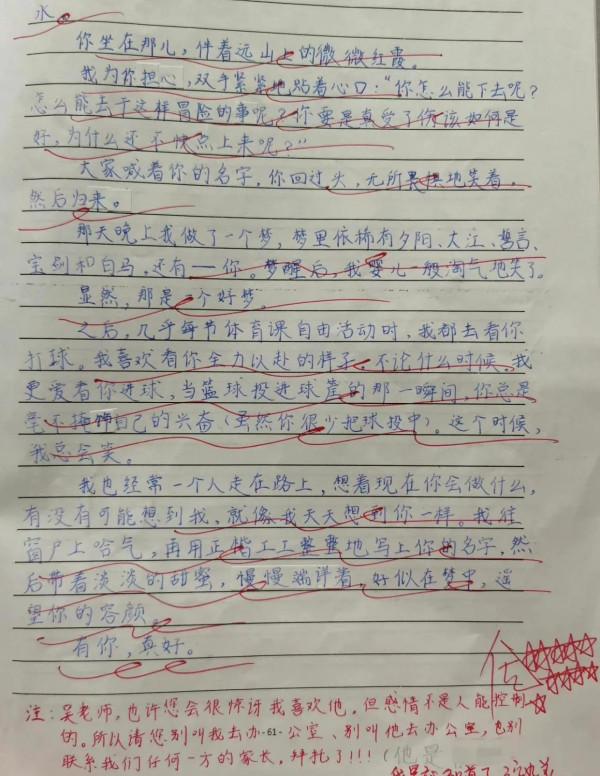 水。
你坐在那儿，伴着远山上的微微红霞。
我为你担心，双手紧紧地贴着心口：“你怎么能下去呢？
怎么能去干这样冒险的事呢？你要是真受了伤该如何是
好，为什么还不快点上来呢？”
大家喊着你的名字，你回过头，无所畏惧地笑着，
然后归来。
那天晚上我做了一个梦，梦里依稀有夕阳、大江、誓言、
宝剑和白马，还有——你。梦醒后，我婴儿一般淘气地笑了。
显然，那是一个好梦。
之后，几乎每节体育课自由活动时，我都去看你
打球。我喜欢看你全力以赴的样子。不论什么时候。我
更爱看你进球，当篮球投进球筐的那一瞬间，你总是
毫不掩饰自己的兴奋（虽然你很少把球投中）。这个时候，
我总会笑。
我也经常一个人走在路上，想着现在你会做什么，
有没有可能想到我，就像我天天想到你一样。我往
窗户上哈气，再用正楷工工整整地写上你的名字，然
后带着淡淡的甜蜜，慢慢端详着，好似在梦中，遥
望你的容颜。
有你，真好。
注：吴老师，也许您会很惊讶我喜欢他。但感情不是人能控制
的。所以请您别叫我去办公室、别叫他去办公室，也别
-61-
联系我们任何一方的家长，拜托了！！！（他是